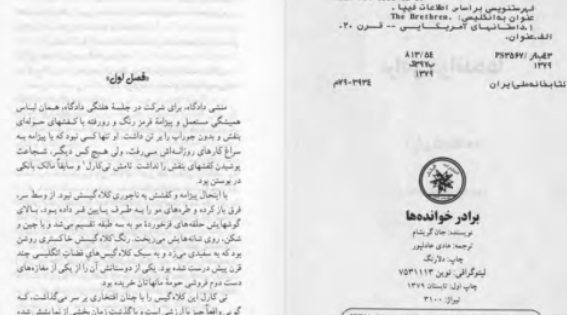 فهرستنویسی بر اساس اطلاعات فیپا .
عنوان به انگلیسی: The Brethren.
۱.داستانهای آمریکایی -- قرن ۲۰.
الف.عنوان.
۸۱۳/۵۴
PS۳۵۶۷/
۱۳۷۹
۱۳۷۹
کتابخانه ملی ایران
م۷۹-۳۹۳۴
برادر خوانده‌ها
نویسنده: جان گریشام
ترجمه: هادی عادلپور
چاپ: دلارنگ
لیتوگرافی: نوین ۷۵۳۱۱۱۳
چاپ اول: تابستان ۱۳۷۹
تیراژ: ۳۱۰۰
«فصل اول»
منشی دادگاه، برای شرکت در جلسهٔ هفتگی دادگاه، همان لباس
همیشگی مستعمل و پیژامهٔ قرمز رنگ و رورفته با کفشهای حوله‌ای
بنفش و بدون جوراب را بر تن داشت. او تنها کسی نبود که با پیژامه به
سراغ کارهای روزانه‌اش می‌رفت، ولی هیچ کس دیگر، شجاعت
پوشیدن کفشهای بنفش را نداشت. نامش تی‌کارل و سابقاً مالک بانکی
در بوستن بود.
با اینحال پیژامه و کفشش به ناجوری کلاه گیسش نبود. از وسط سر،
فرق باز کرده و طره‌های مو را به طرف پایین فر داده بود. بالای
گوشهایش حلقه‌های فرخوردهٔ مو به سه طبقه تقسیم می‌شد و با چین و
شکن، روی شانه‌هایش می‌ریخت. رنگ کلاه گیسش خاکستری روشن
بود که به سفیدی می‌زد و به سبک کلاه گیس‌های قضات انگلیسی چند
قرن پیش درست شده بود. یکی از دوستانش آن را از یکی از مغازه‌های
دست دوم فروشی حومهٔ مانهاتان خریده بود.
تی کارل این کلاه گیس را با چنان افتخاری بر سر می‌گذاشت، که
گویی واقعاً چیز با ارزشی است و با گذشت زمان بخشی از نمایشش شده